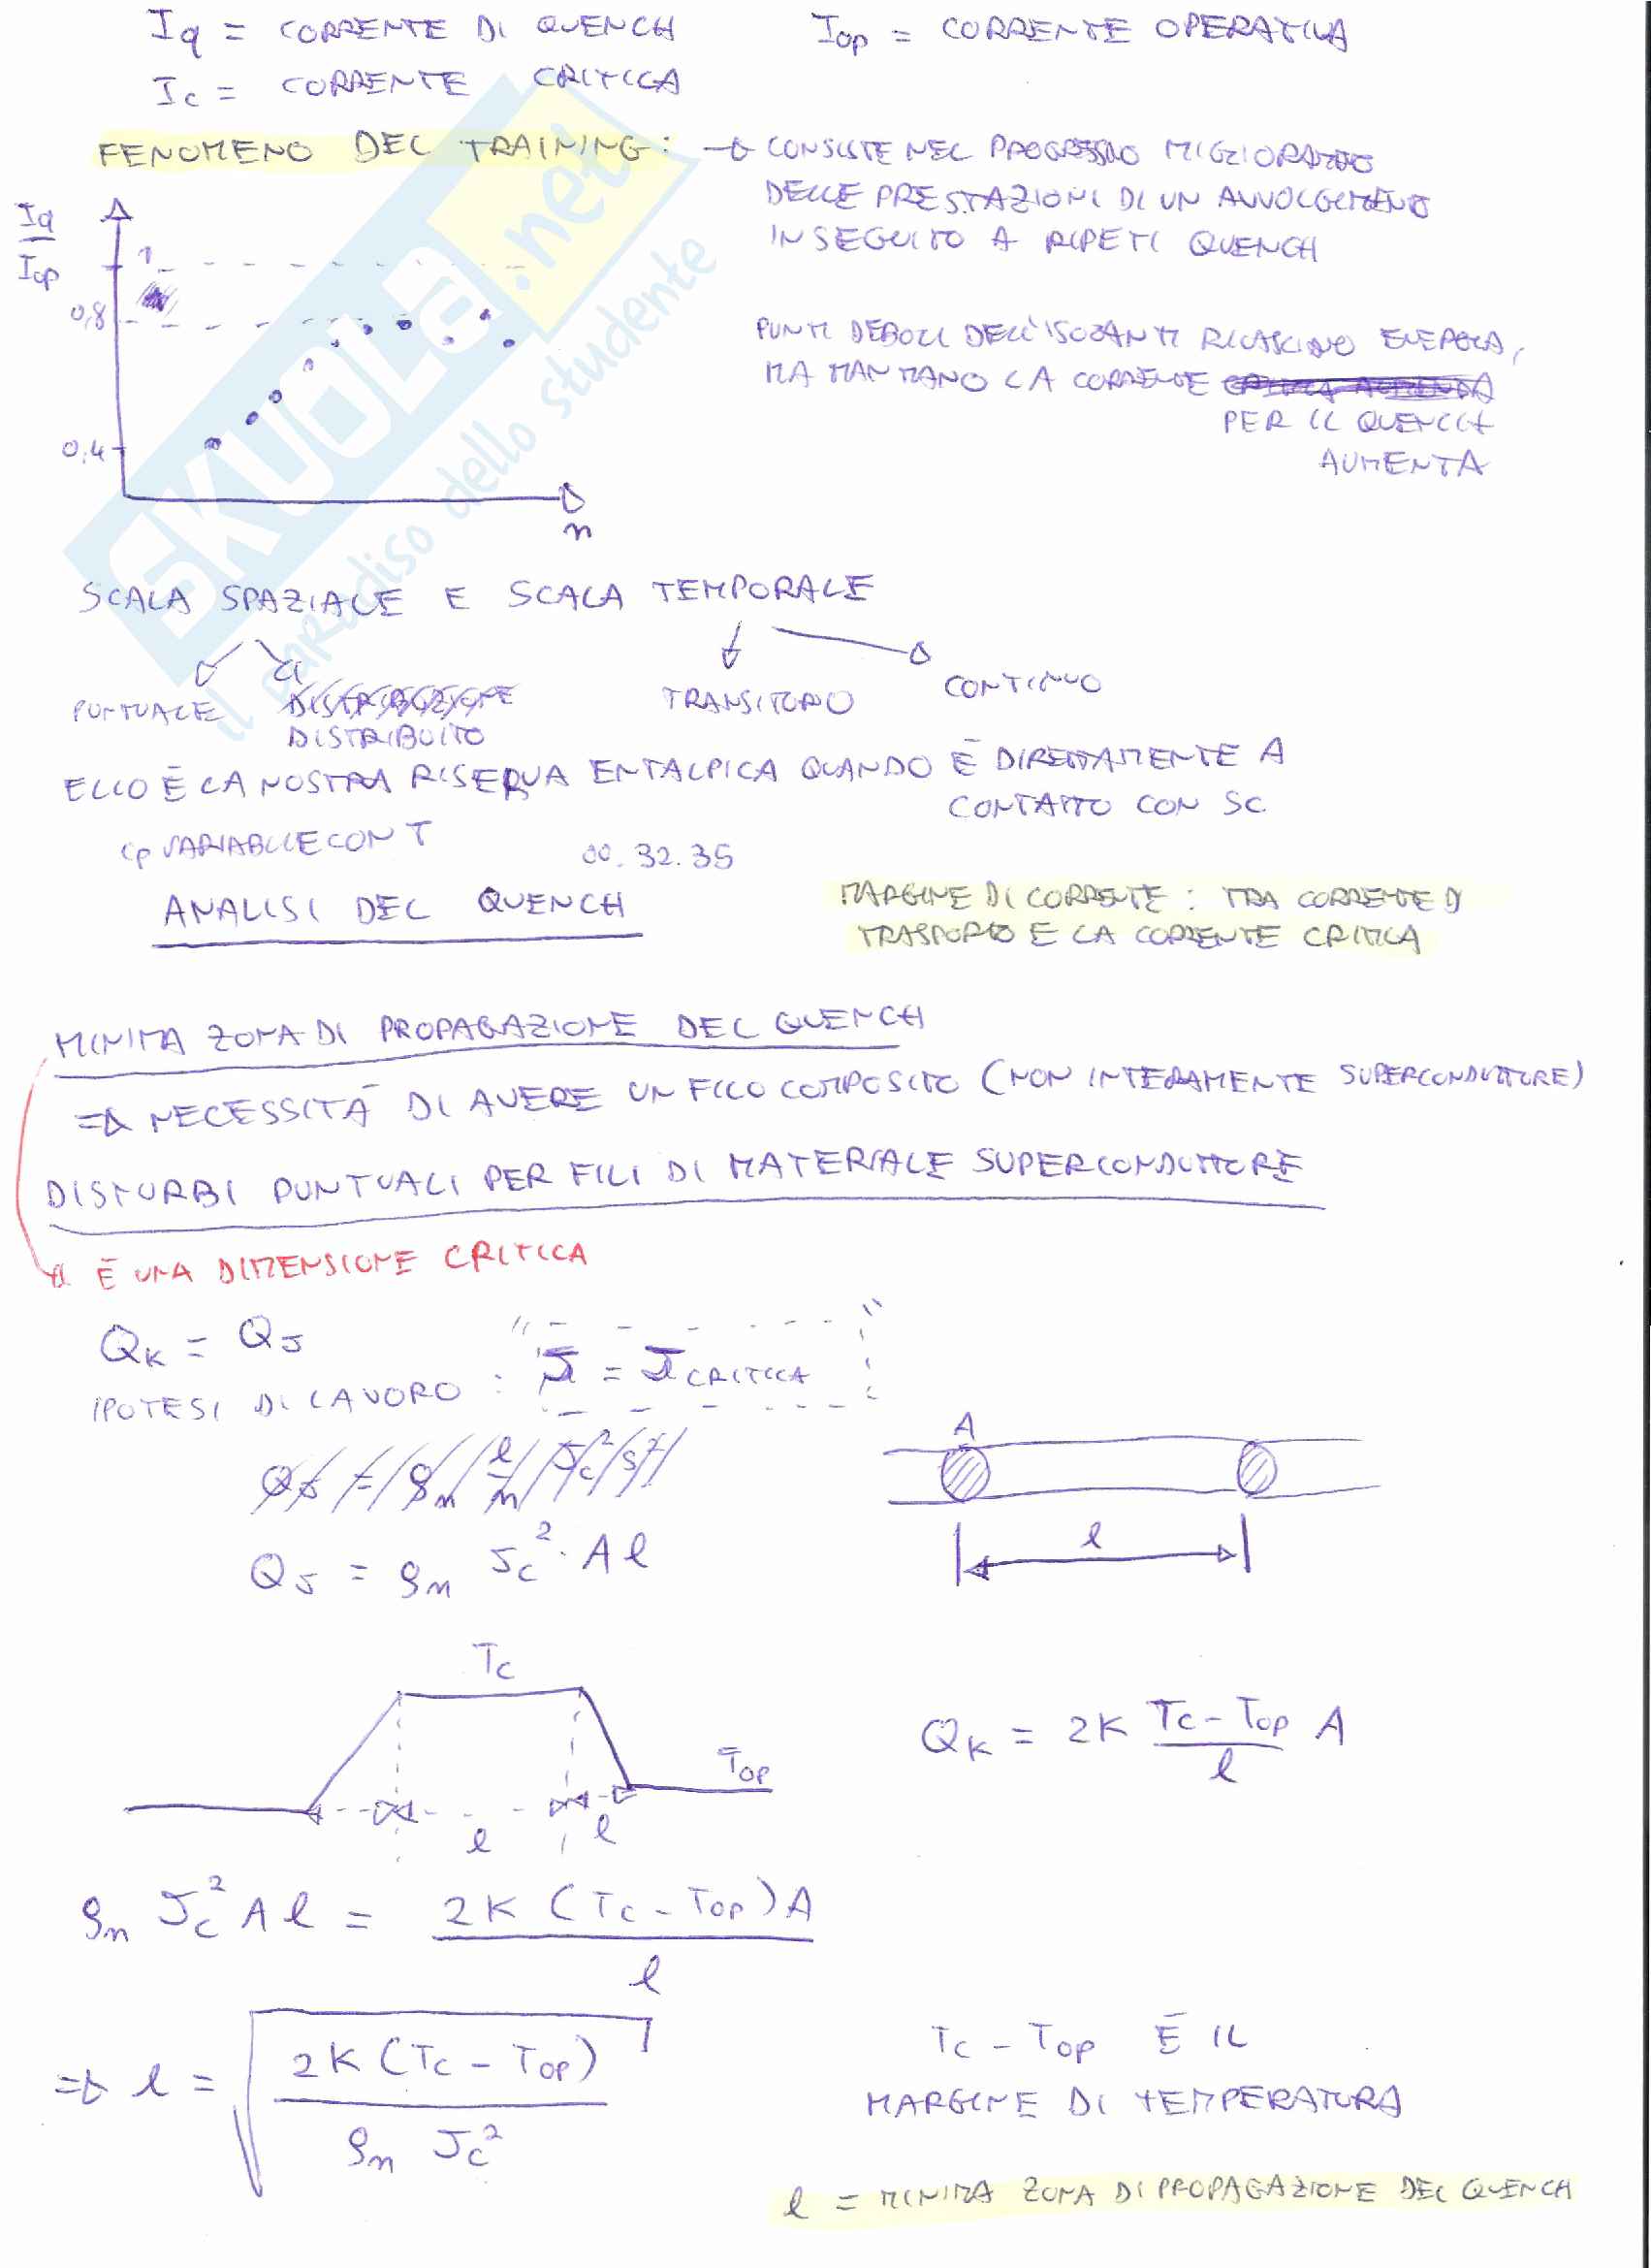 Iq = CORRENTE DI QUENCH
Iop = CORRENTE OPERATIVA
Ic = CORRENTE CRITICA
FENOMENO DEL TRAINING: → CONSISTE NEL PROGRESSIVO MIGLIORAMENTO
DELLE PRESTAZIONI DI UN AVVOLGIMENTO
IN SEGUITO A RIPETI QUENCH
Iq
Iop
1
0,8
0,4
n
PUNTI DEBOLI DELL'ISOLANTI RILASCIANO ENERGIA,
MA MAN MANO LA CORRENTE
PER IL QUENCH
AUMENTA
SKUOLA.net
il paradiso dello studente
SCALA SPAZIALE E SCALA TEMPORALE
PUNTUALE
DISTRIBUITO
TRANSITORIO
CONTINUO
ELIO È LA NOSTRA RISERVA ENTALPICA QUANDO È DIRETTAMENTE A
CONTATTO CON SC
cp VARIABILE CON T
00.32.35
ANALISI DEL QUENCH
MARGINE DI CORRENTE: TRA CORRENTE DI
TRASPORTO E LA CORRENTE CRITICA
MINIMA ZONA DI PROPAGAZIONE DEL QUENCH
⇒ NECESSITÀ DI AVERE UN FILO COMPOSITO (NON INTERAMENTE SUPERCONDUTTORE)
DISTURBI PUNTUALI PER FILI DI MATERIALE SUPERCONDUTTORE
→ È UNA DIMENSIONE CRITICA
QK = QJ
IPOTESI DI LAVORO: "J = J CRITICA"
QJ = ρn Jc² · A l
A
l
Tc
Top
l
l
QK = 2K (Tc - Top)/l A
ρn Jc² A l = 2K (Tc - Top) A / l
⇒ l = √(2K (Tc - Top) / ρn Jc²)
Tc - Top È IL
MARGINE DI TEMPERATURA
l = MINIMA ZONA DI PROPAGAZIONE DEL QUENCH